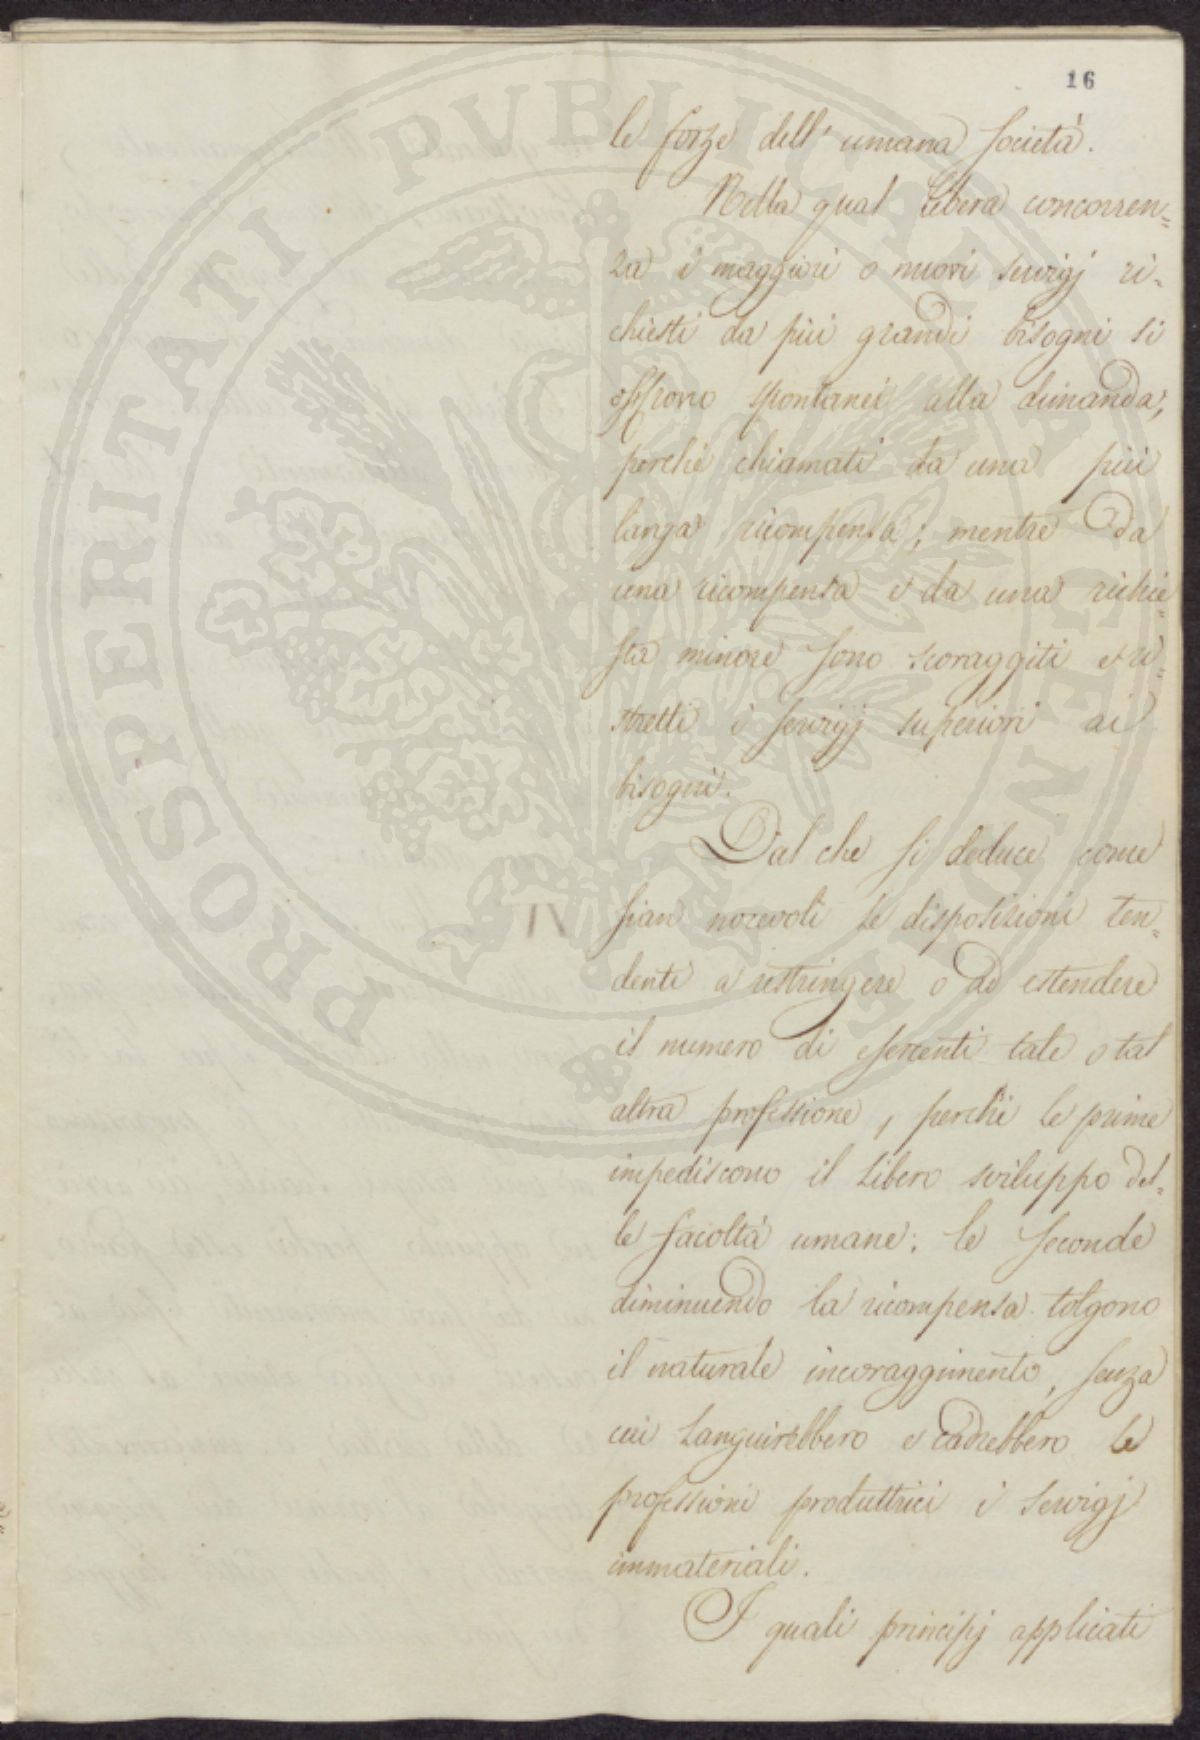 16
le forze dell'umana società.
Nella qual libera concorren=
za i maggiori o nuovi servigj ri=
chiesti da più grandi bisogni si
offrono spontanei alla dimanda,
perchè chiamati da una più
larga ricompensa; mentre da
una ricompensa e da una richie=
sta minore sono scoraggiti e ri=
stretti i servigj superiori ai
bisogni.
Dal che si deduce come
sian nocevoli le disposizioni ten=
denti a restringere o ad estendere
il numero di esercenti tale o tal
altra professione, perchè le prime
impediscono il libero sviluppo del=
le facoltà umane: le seconde
diminuendo la ricompensa tolgono
il naturale incoraggimento, senza
cui languirebbero e cadrebbero le
professioni produttrici i servigj
immateriali.
I quali principj applicati
PROSPERITATI PUBLICAE AUGENDAE